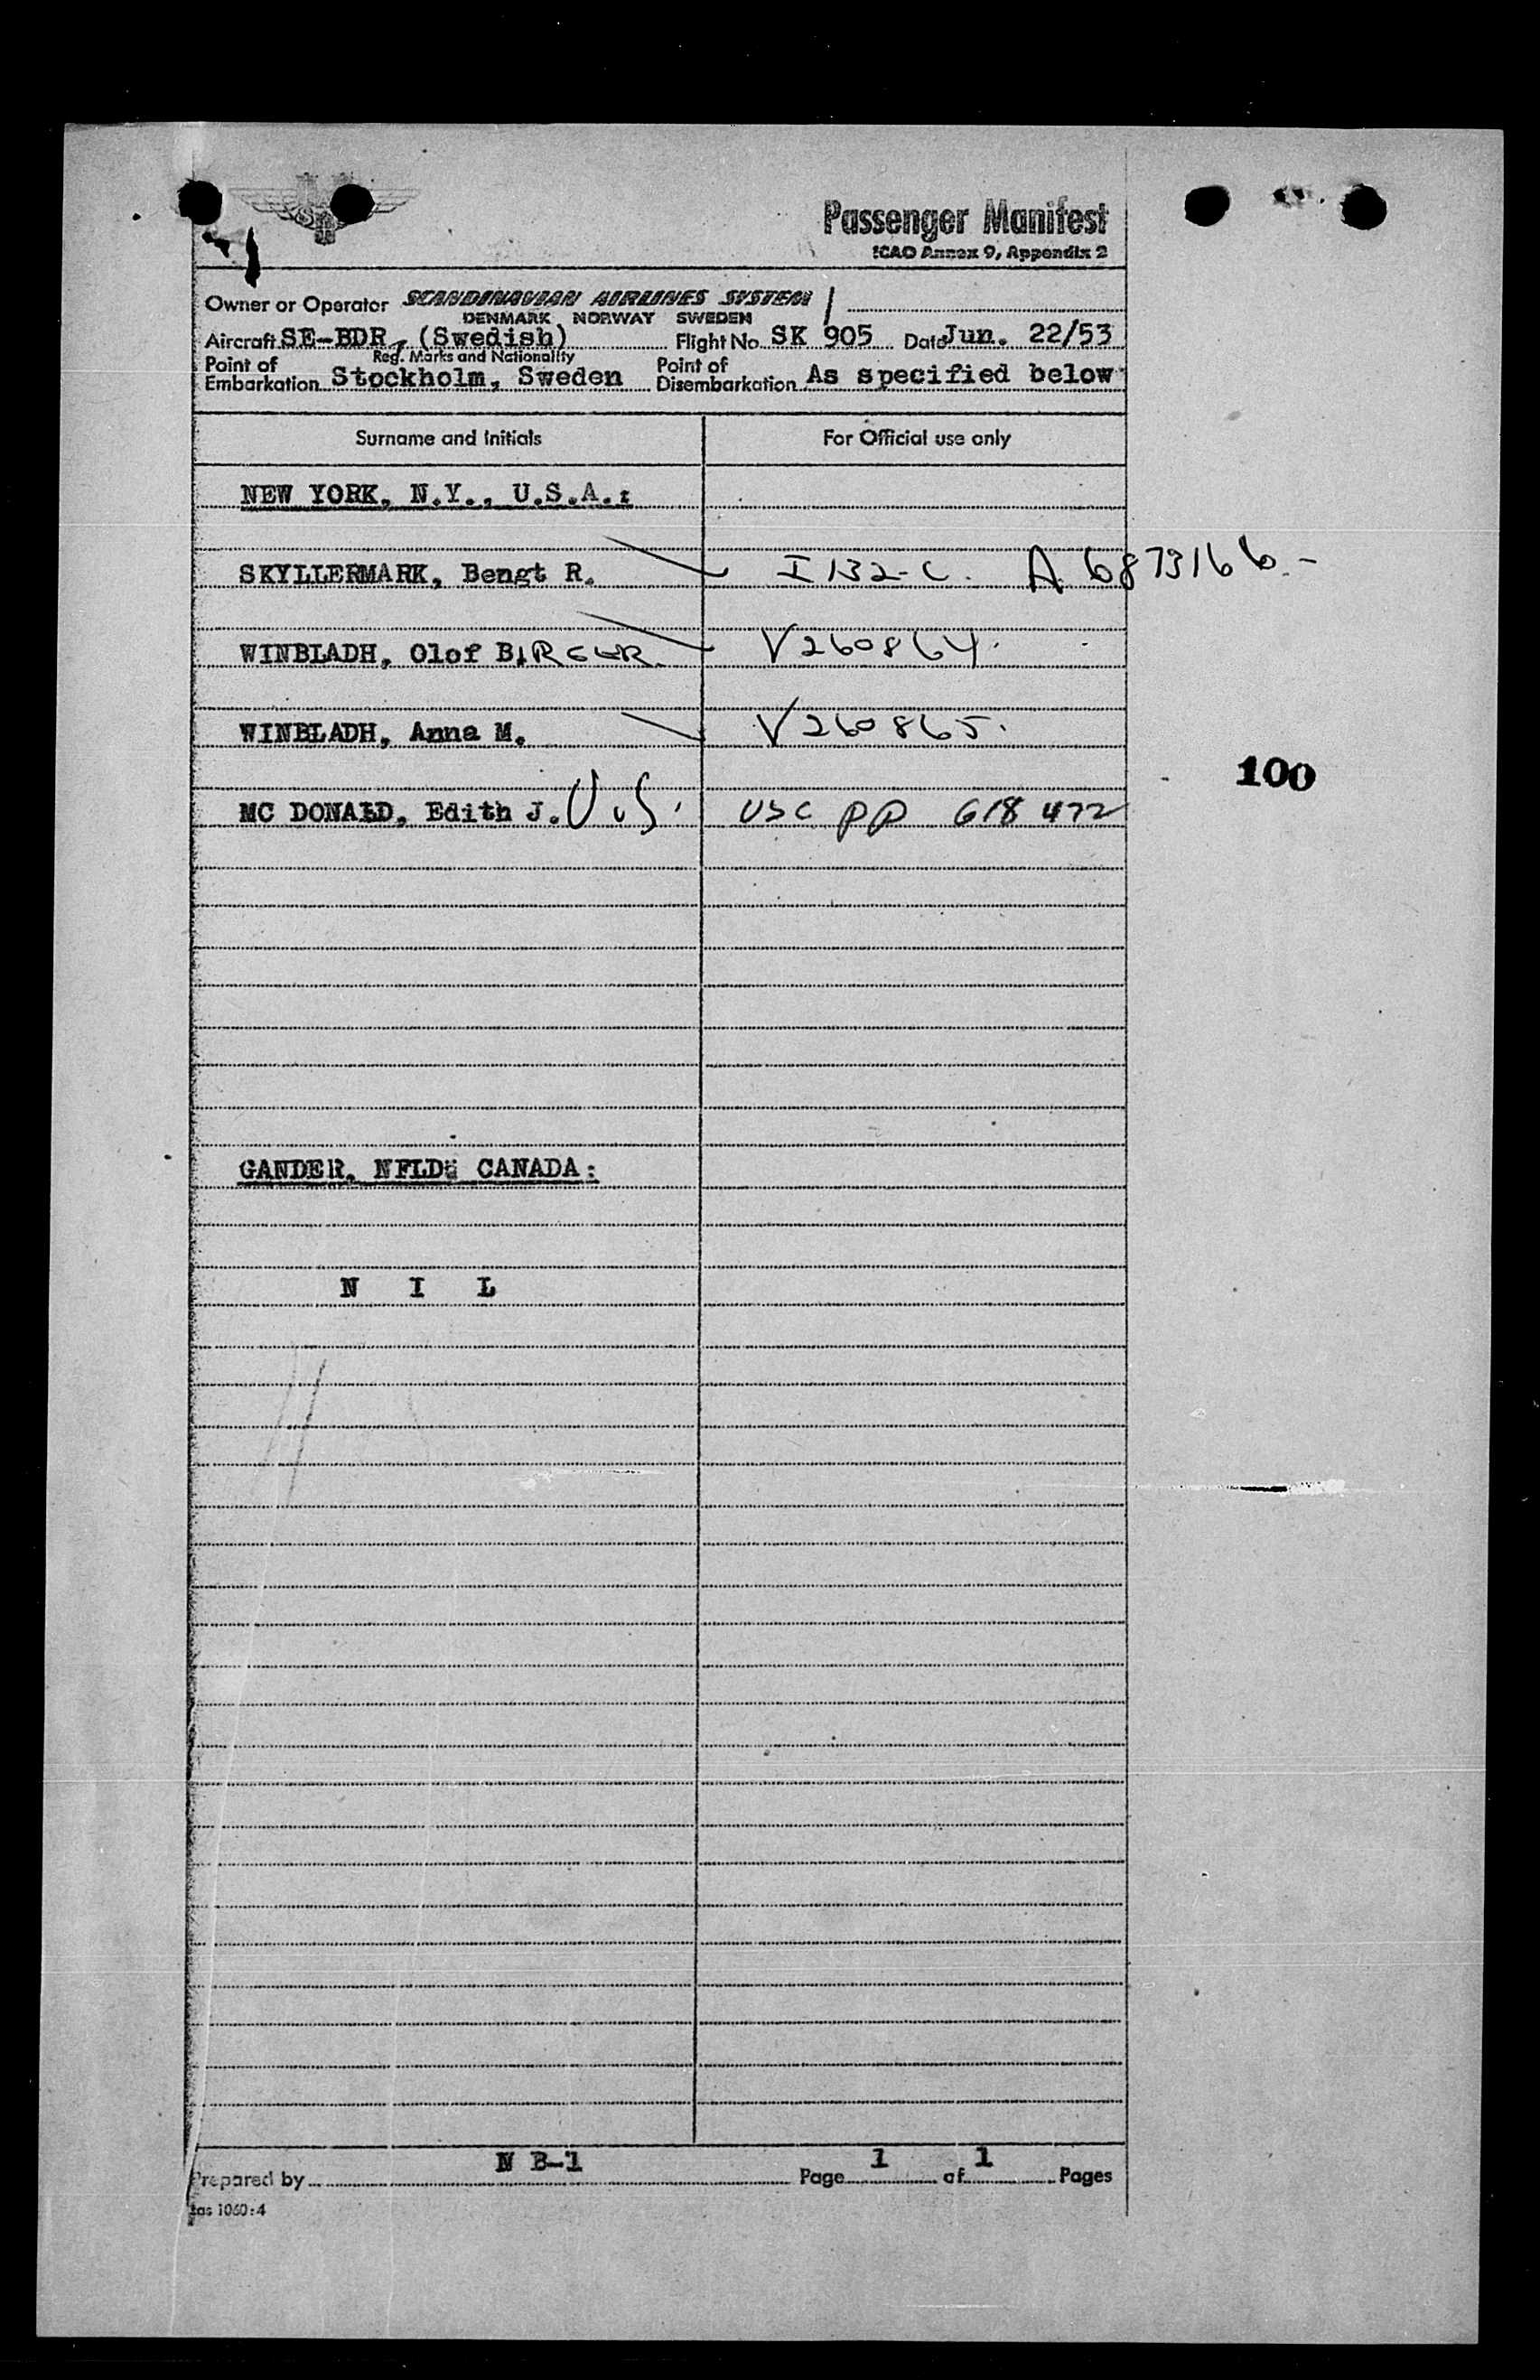 Passenger Manifest
ICAO Annex 9, Appendix 2
Owner or Operator SCANDINAVIAN AIRLINES SYSTEM
DENMARK NORWAY SWEDEN
Aircraft SE-BDR, (Swedish) Flight No. SK 905 Date Jun. 22/53
Reg. Marks and Nationality
Point of Embarkation Stockholm, Sweden Point of Disembarkation As specified below
Surname and Initials For Official use only
NEW YORK, N.Y., U.S.A.:
SKYLLERMARK, Bengt R. I 132-C. A 6873166.-
WINBLADH, Olof BIRGER V260864.
WINBLADH, Anna M. V260865.
100
MC DONALD, Edith J. U.S. USC PP 618 472
GANDER, NFLD CANADA:
N I L
N B-1 1 1
Prepared by Page of Pages
sas 1060:4